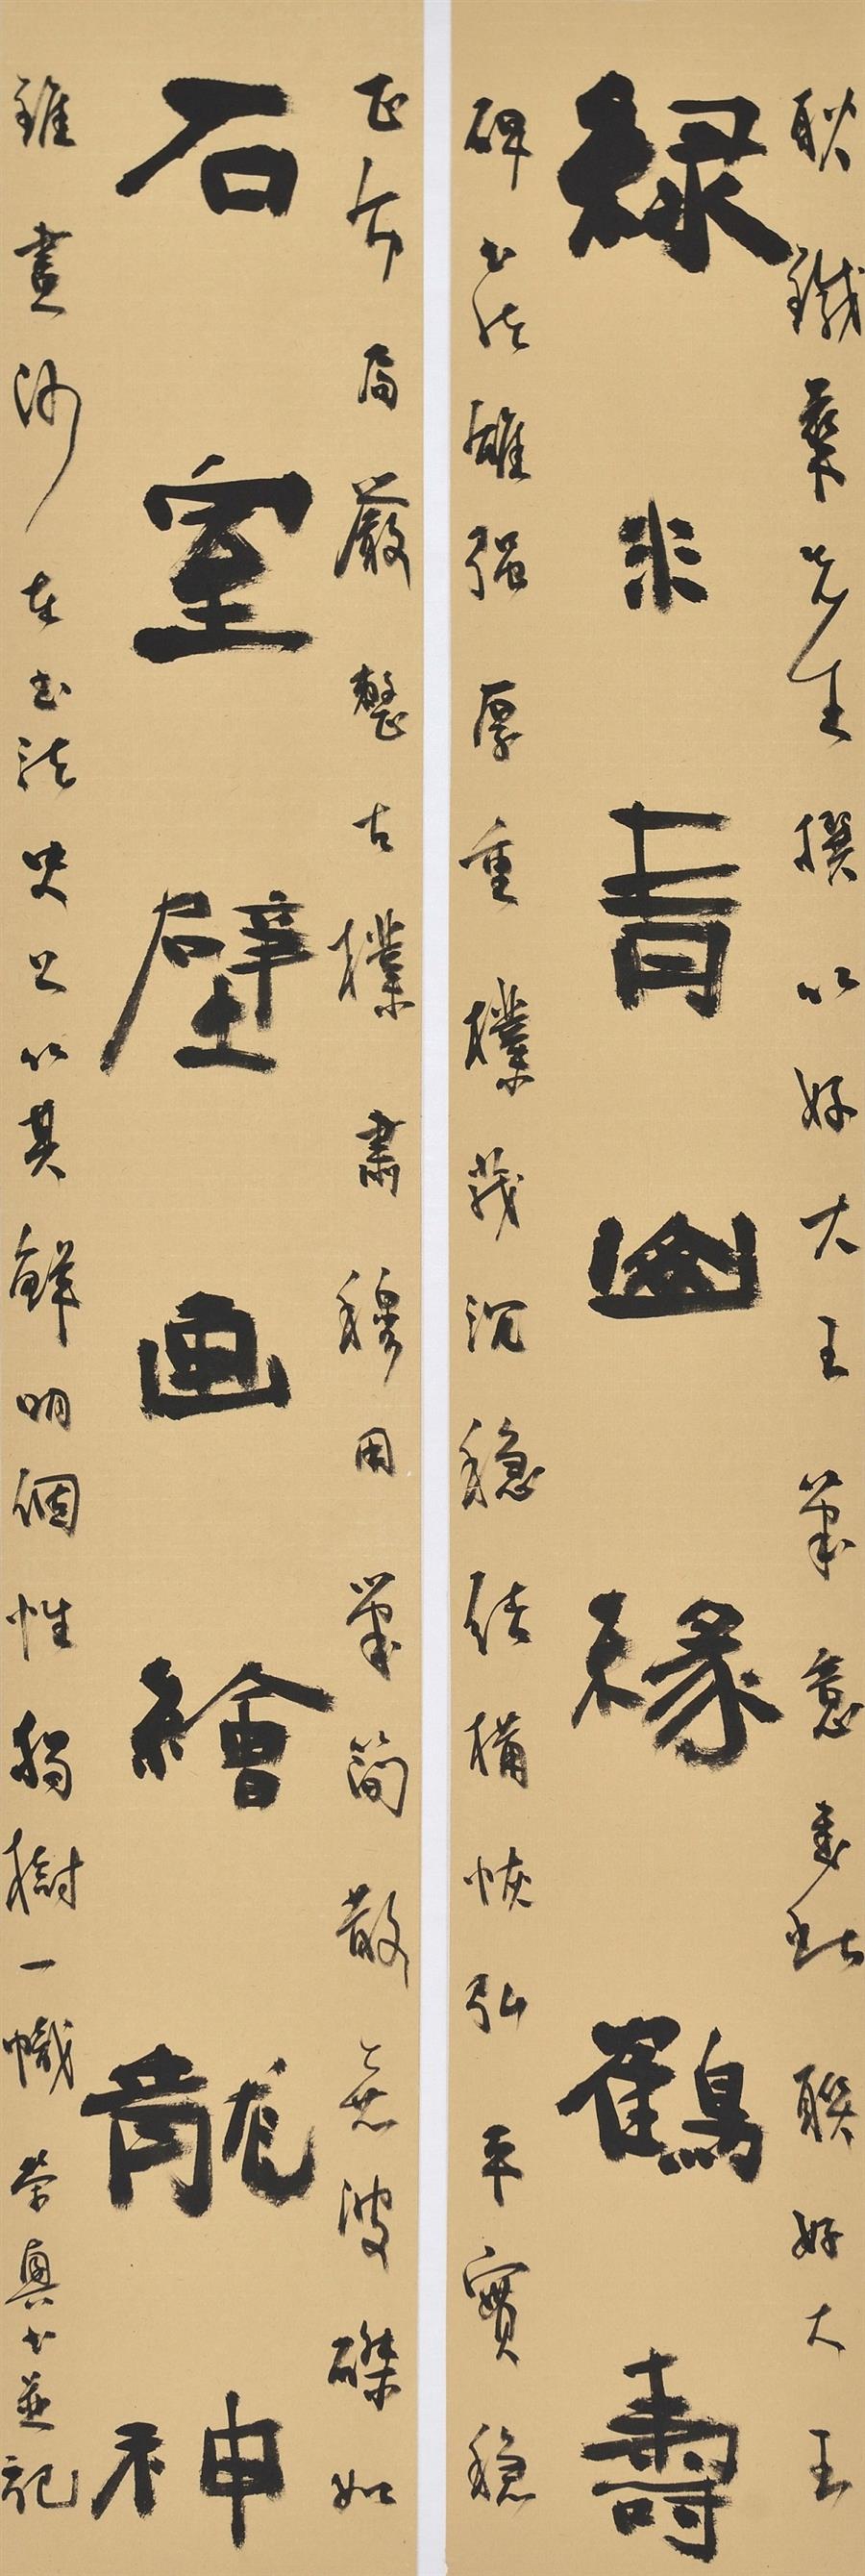 耿鐵華先生撰以好大王筆意書此聯好大王
禄米青幽緣鶴壽
碑書法雄强厚重樸茂沉穩結構恢弘平實穩
正布局嚴整古樸肅穆用筆簡散無波磔如
石室壁画繪龍神
錐畫沙在書法史上以其鮮明個性獨樹一幟榮書並記